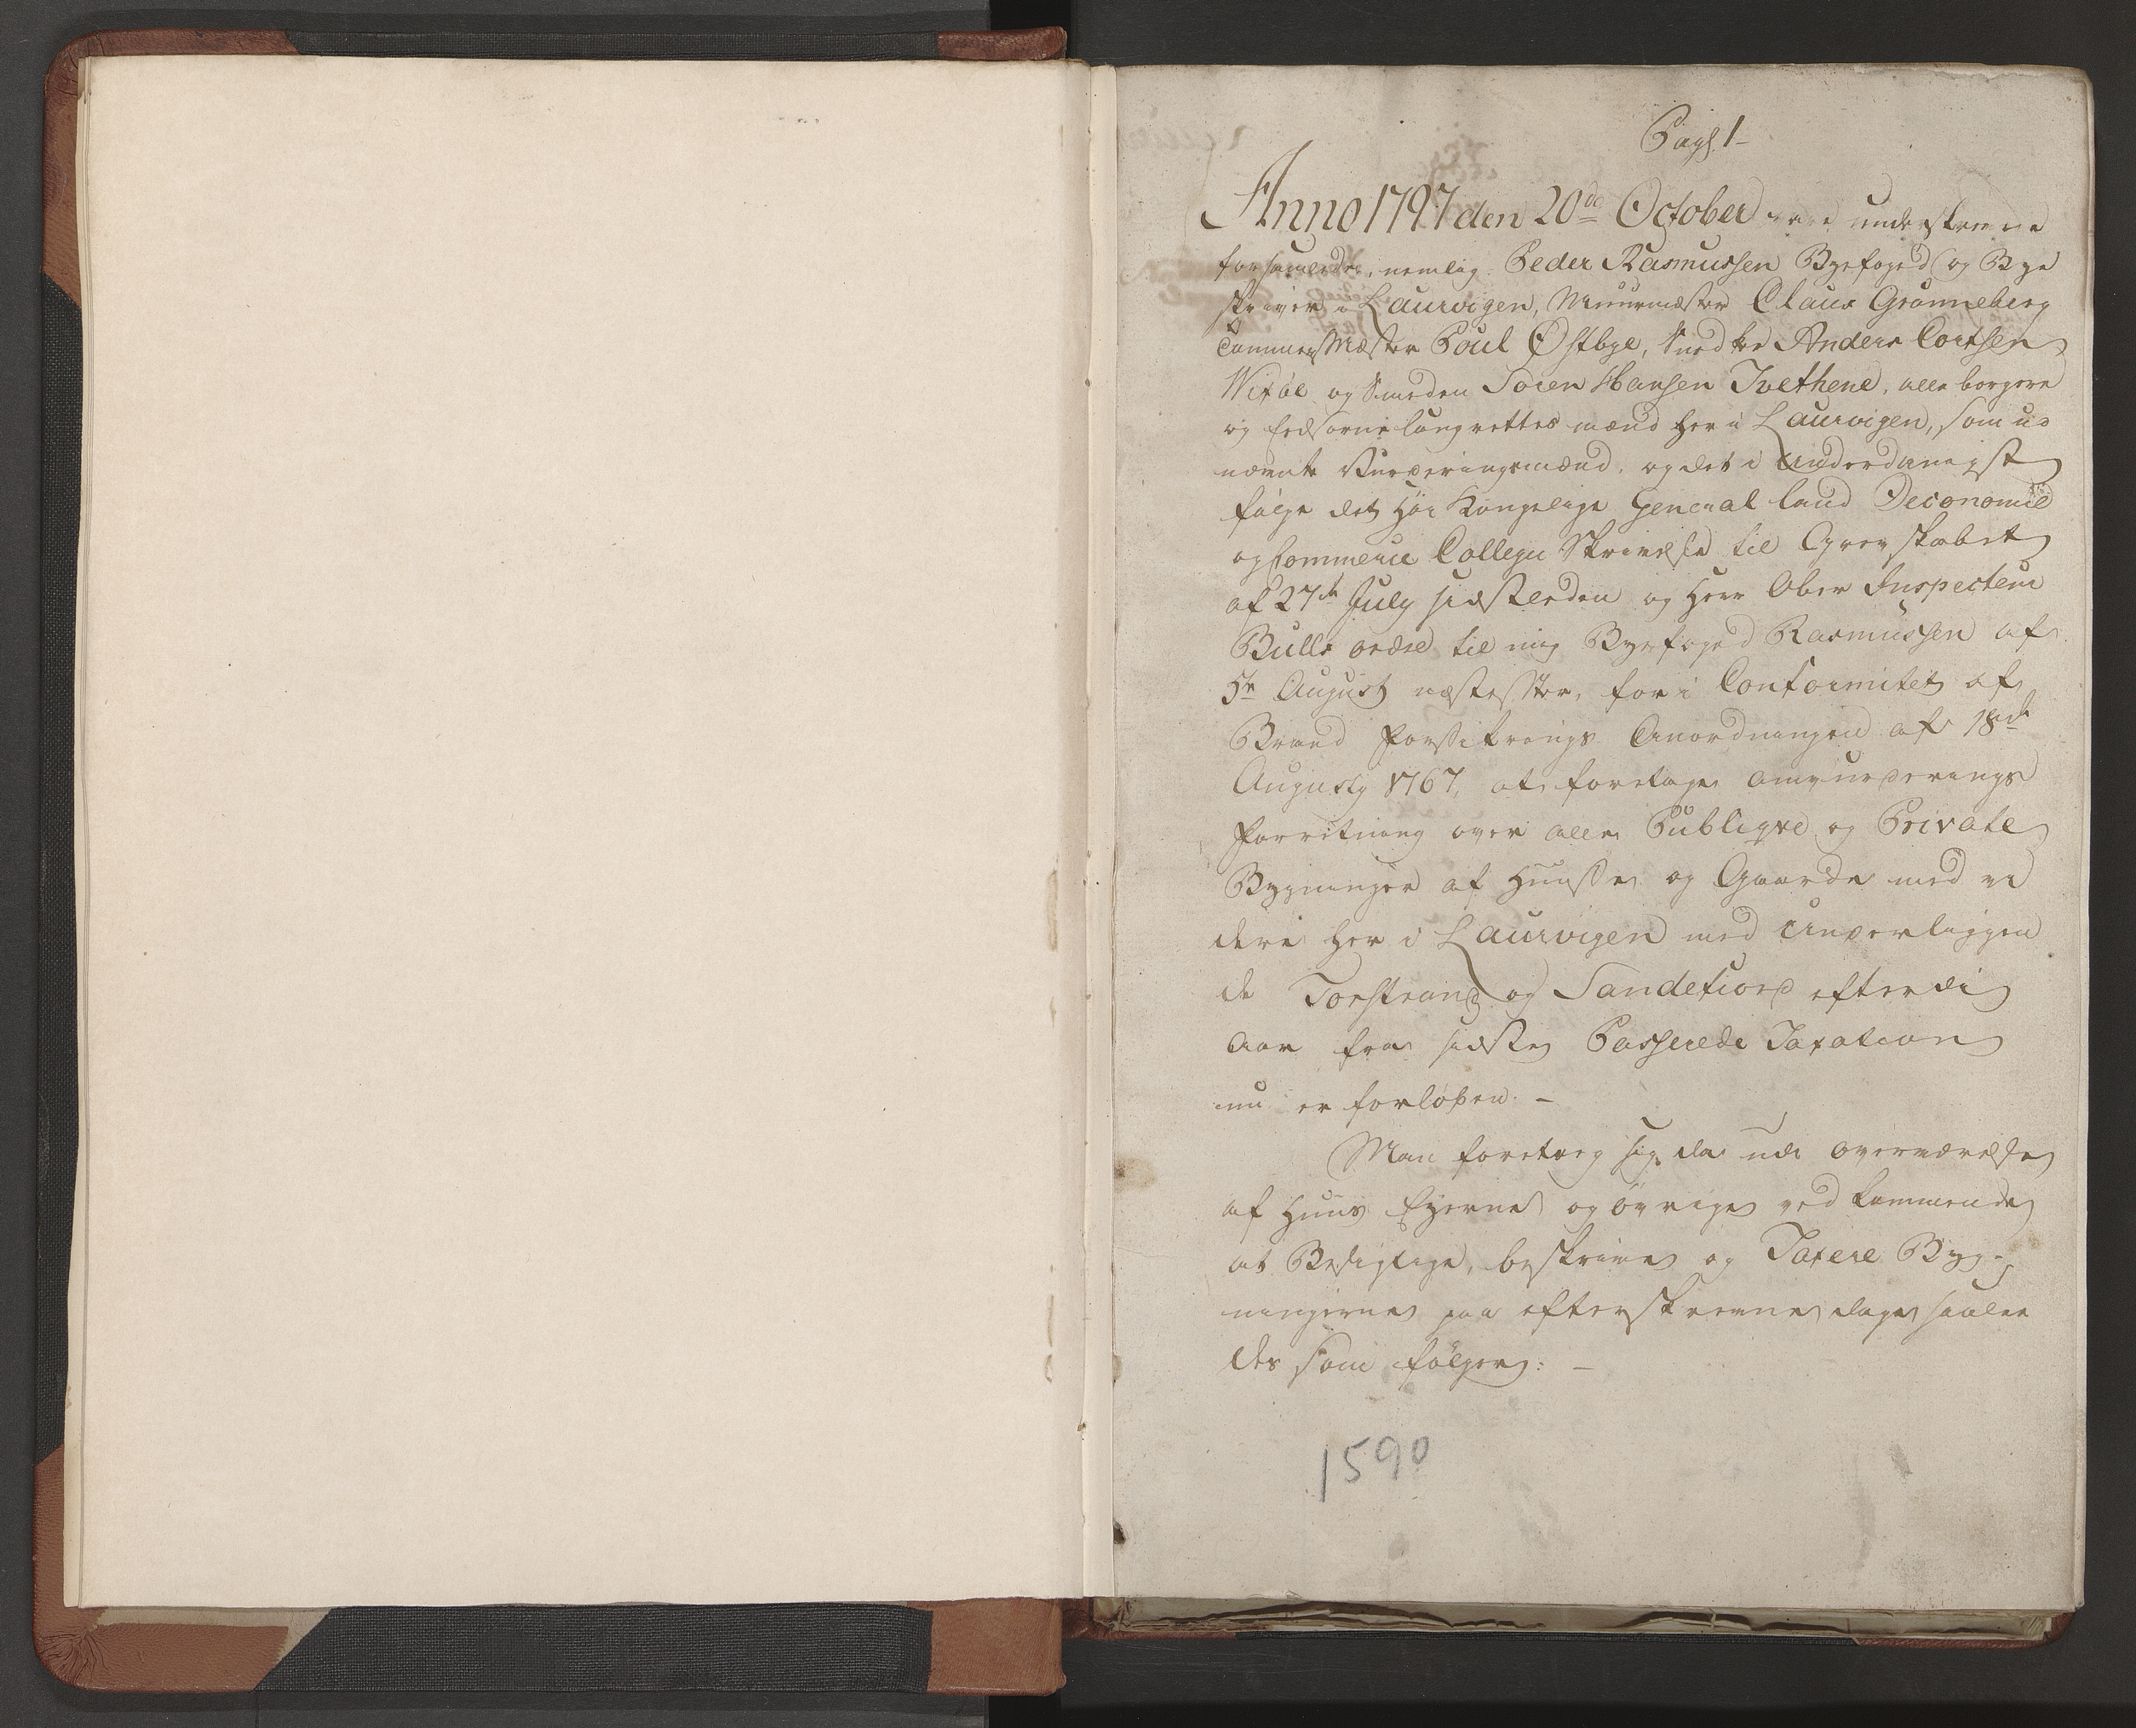 Pag: 1
Anno 1797 den 20de October vare underskrevne
forsamlede, nemlig Peder Rasmussen Byefoged og Bye
skriver i Laurvigen, Muurmæster Claus Grønneberg
Tømmermæster Poul Østbye, Snedker Anders Cortsen
og Smeden Søren Hansen Tvethene, alle borgere
og Eedsorne laugrettes mænd her i Laurvigen, som ud
nævnte Vurderingsmænd, og det i underdanigst
følge det Høi Kongelige General Land Oeconomie
og Commerce Collegii Skrivelse til Grevskabet
af 27de July sidstleden og Herr Ober Inspecteur
Bulls ordre til mig Byefoged Rasmussen af
5te August næstefter, for i Conformitet af
Brand Forsikrings Anordningen af 18de
Augusty 1767, at foretage omvurderings
Forretning over alle Publiqve og Private
Bygninger af Huusse og Gaarde med vi
dere her i Laurvigen med underliggen
de Torstrand og Sandefiord efterdi
Aar fra sidste Passerede Taxation
nu er forløben. -
Man foretoeg sig da udi overværelse
af Huus Eyerne og øvrige vedkommende
at Besigtige, beskrive og Taxere Byg-
ningerne paa efterskrevne dage saalee
des som følger: -
1590